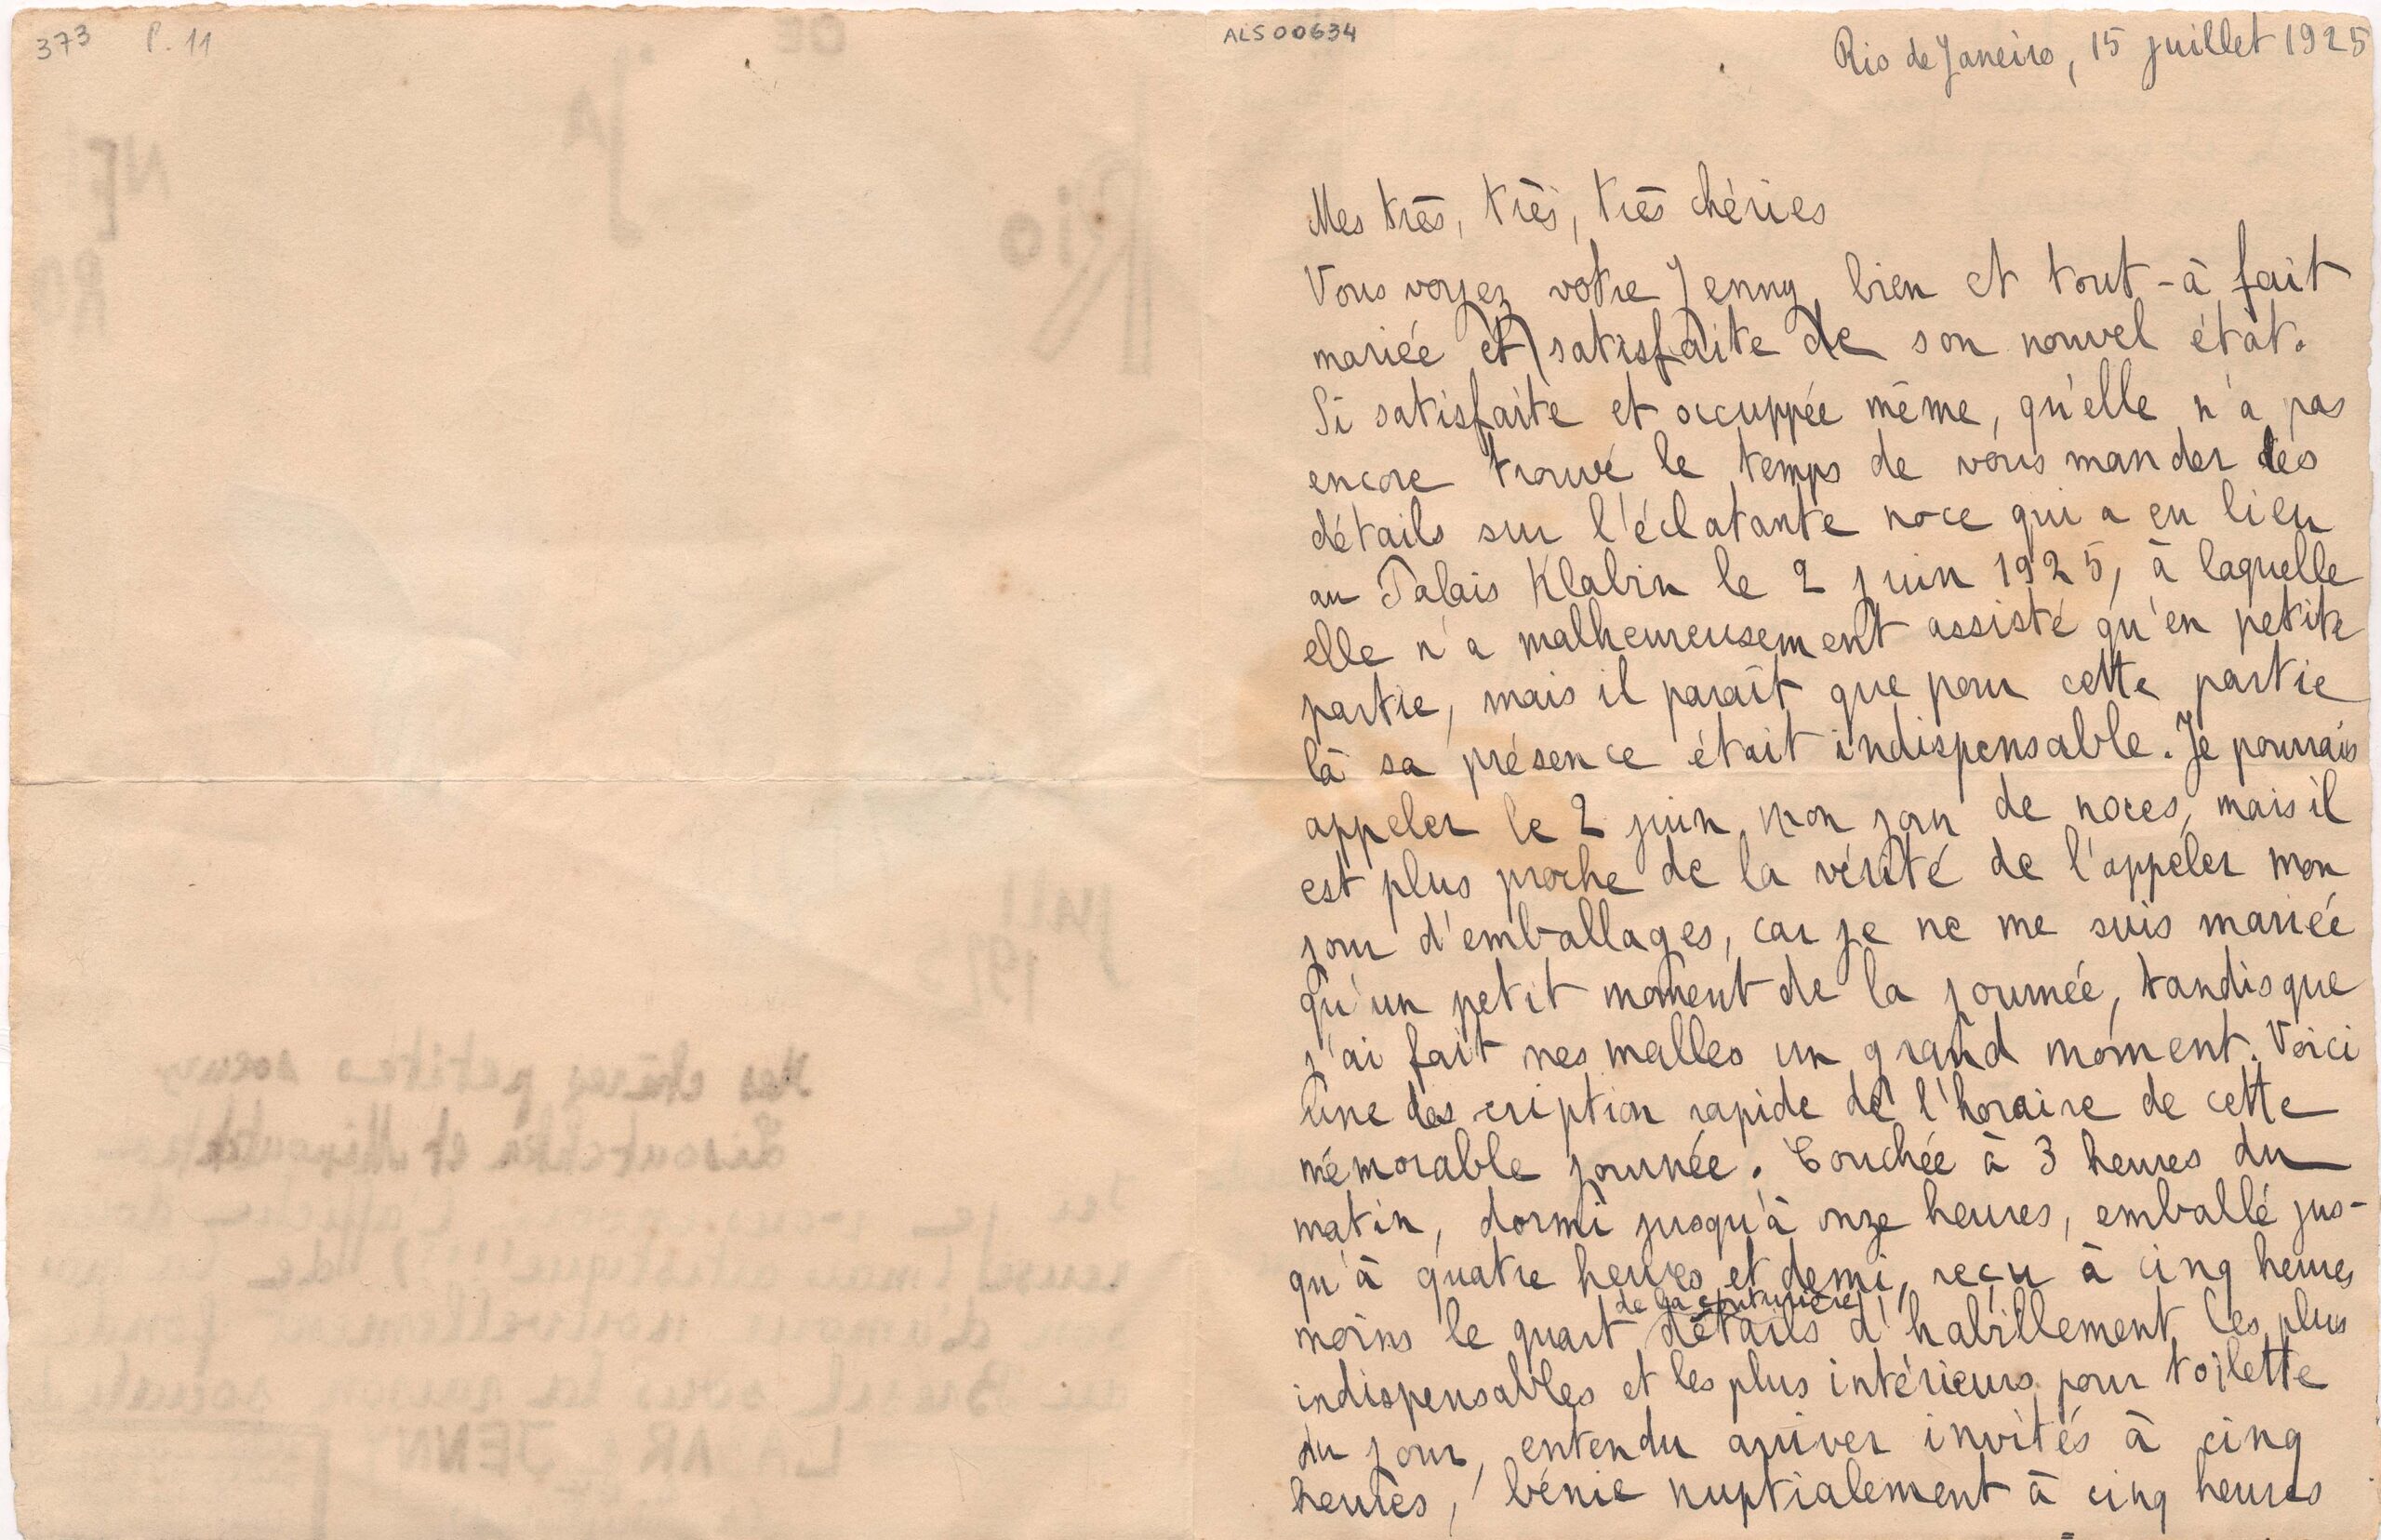 373 P. 11
ALS 00634
Rio de Janeiro, 15 juillet 1925
Mes très, très, très chéries
Vous voyez votre Jenny bien et tout-à fait
mariée et satisfaite de son nouvel état.
Si satisfaite et occuppée même, qu'elle n'a pas
encore trouvé le temps de vous mander des
détails sur l'éclatante noce qui a eu lieu
au Palais Klabin le 2 juin 1925, à laquelle
elle n'a malheureusement assisté qu'en petite
partie, mais il paraît que pour cette partie
là sa présence était indispensable. Je pourrais
appeler le 2 juin mon jour de noces, mais il
est plus proche de la vérité de l'appeler mon
jour d'emballages, car je ne me suis mariée
qu'un petit moment de la journée, tandisque
j'ai fait mes malles un grand moment. Voici
une description rapide de l'horaire de cette
mémorable journée. Couchée à 3 heures du
matin, dormi jusqu'à onze heures, emballé jus-
qu'à quatre heures et demi, reçu à cinq heures
de la couturière
moins le quart détails d'habillement les plus
indispensables et les plus intérieurs pour toilette
du jour, entendu arriver invités à cinq
heures, bénie nuptialement à cinq heures
Rio
DE
JA
NEI
RO
JUIL
192
Mes chères petites soeurs